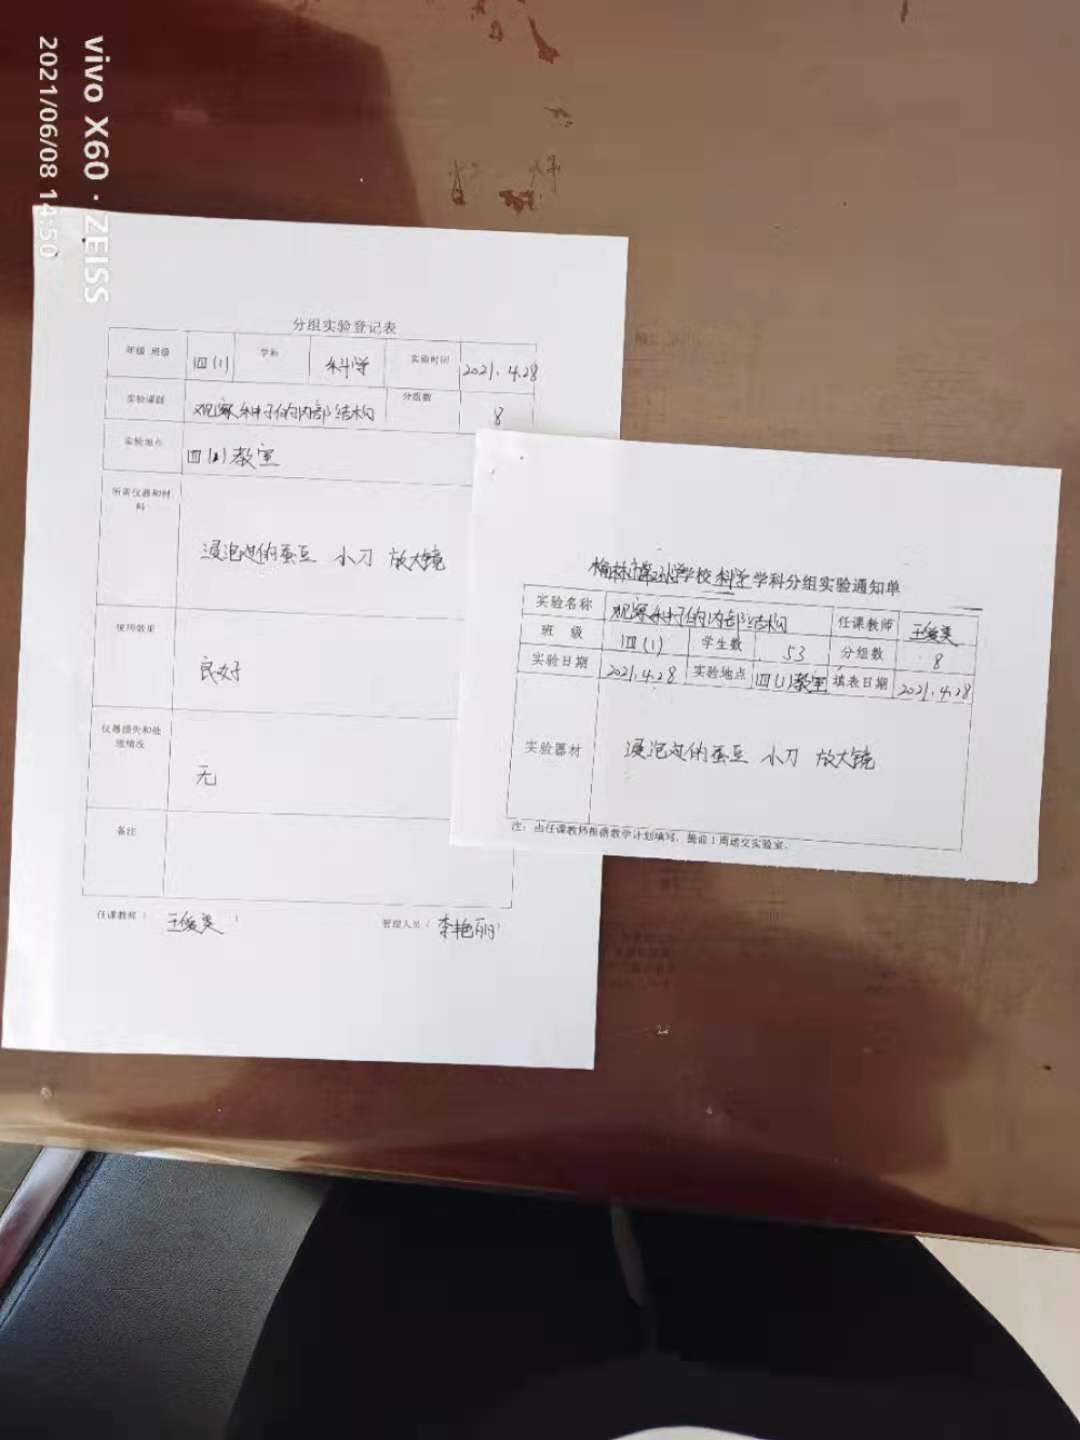 vivo X60 · ZEISS
2021/06/08 14:50
分组实验登记表
年级 班级 四(1) 学科 科学 实验时间 2021.4.28
实验课题 观察种子的内部结构 分组数 8
实验地点 四(1)教室
所需仪器和材料 浸泡过的蚕豆 小刀 放大镜
使用效果 良好
仪器损失和处理情况 无
备注
任课教师( 王 ) 管理人员(李艳丽)
榆林市 小学学校科学学科分组实验通知单
实验名称 观察种子的内部结构 任课教师 王
班 级 四(1) 学生数 53 分组数 8
实验日期 2021.4.28 实验地点 四(1)教室 填表日期 2021.4.28
实验器材 浸泡过的蚕豆 小刀 放大镜
注:由任课教师根据教学计划填写,提前1周送交实验室。